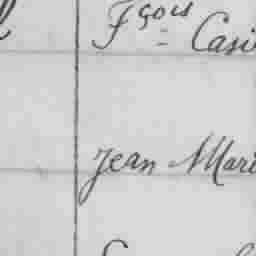 Fçois Casi
Jean Mari